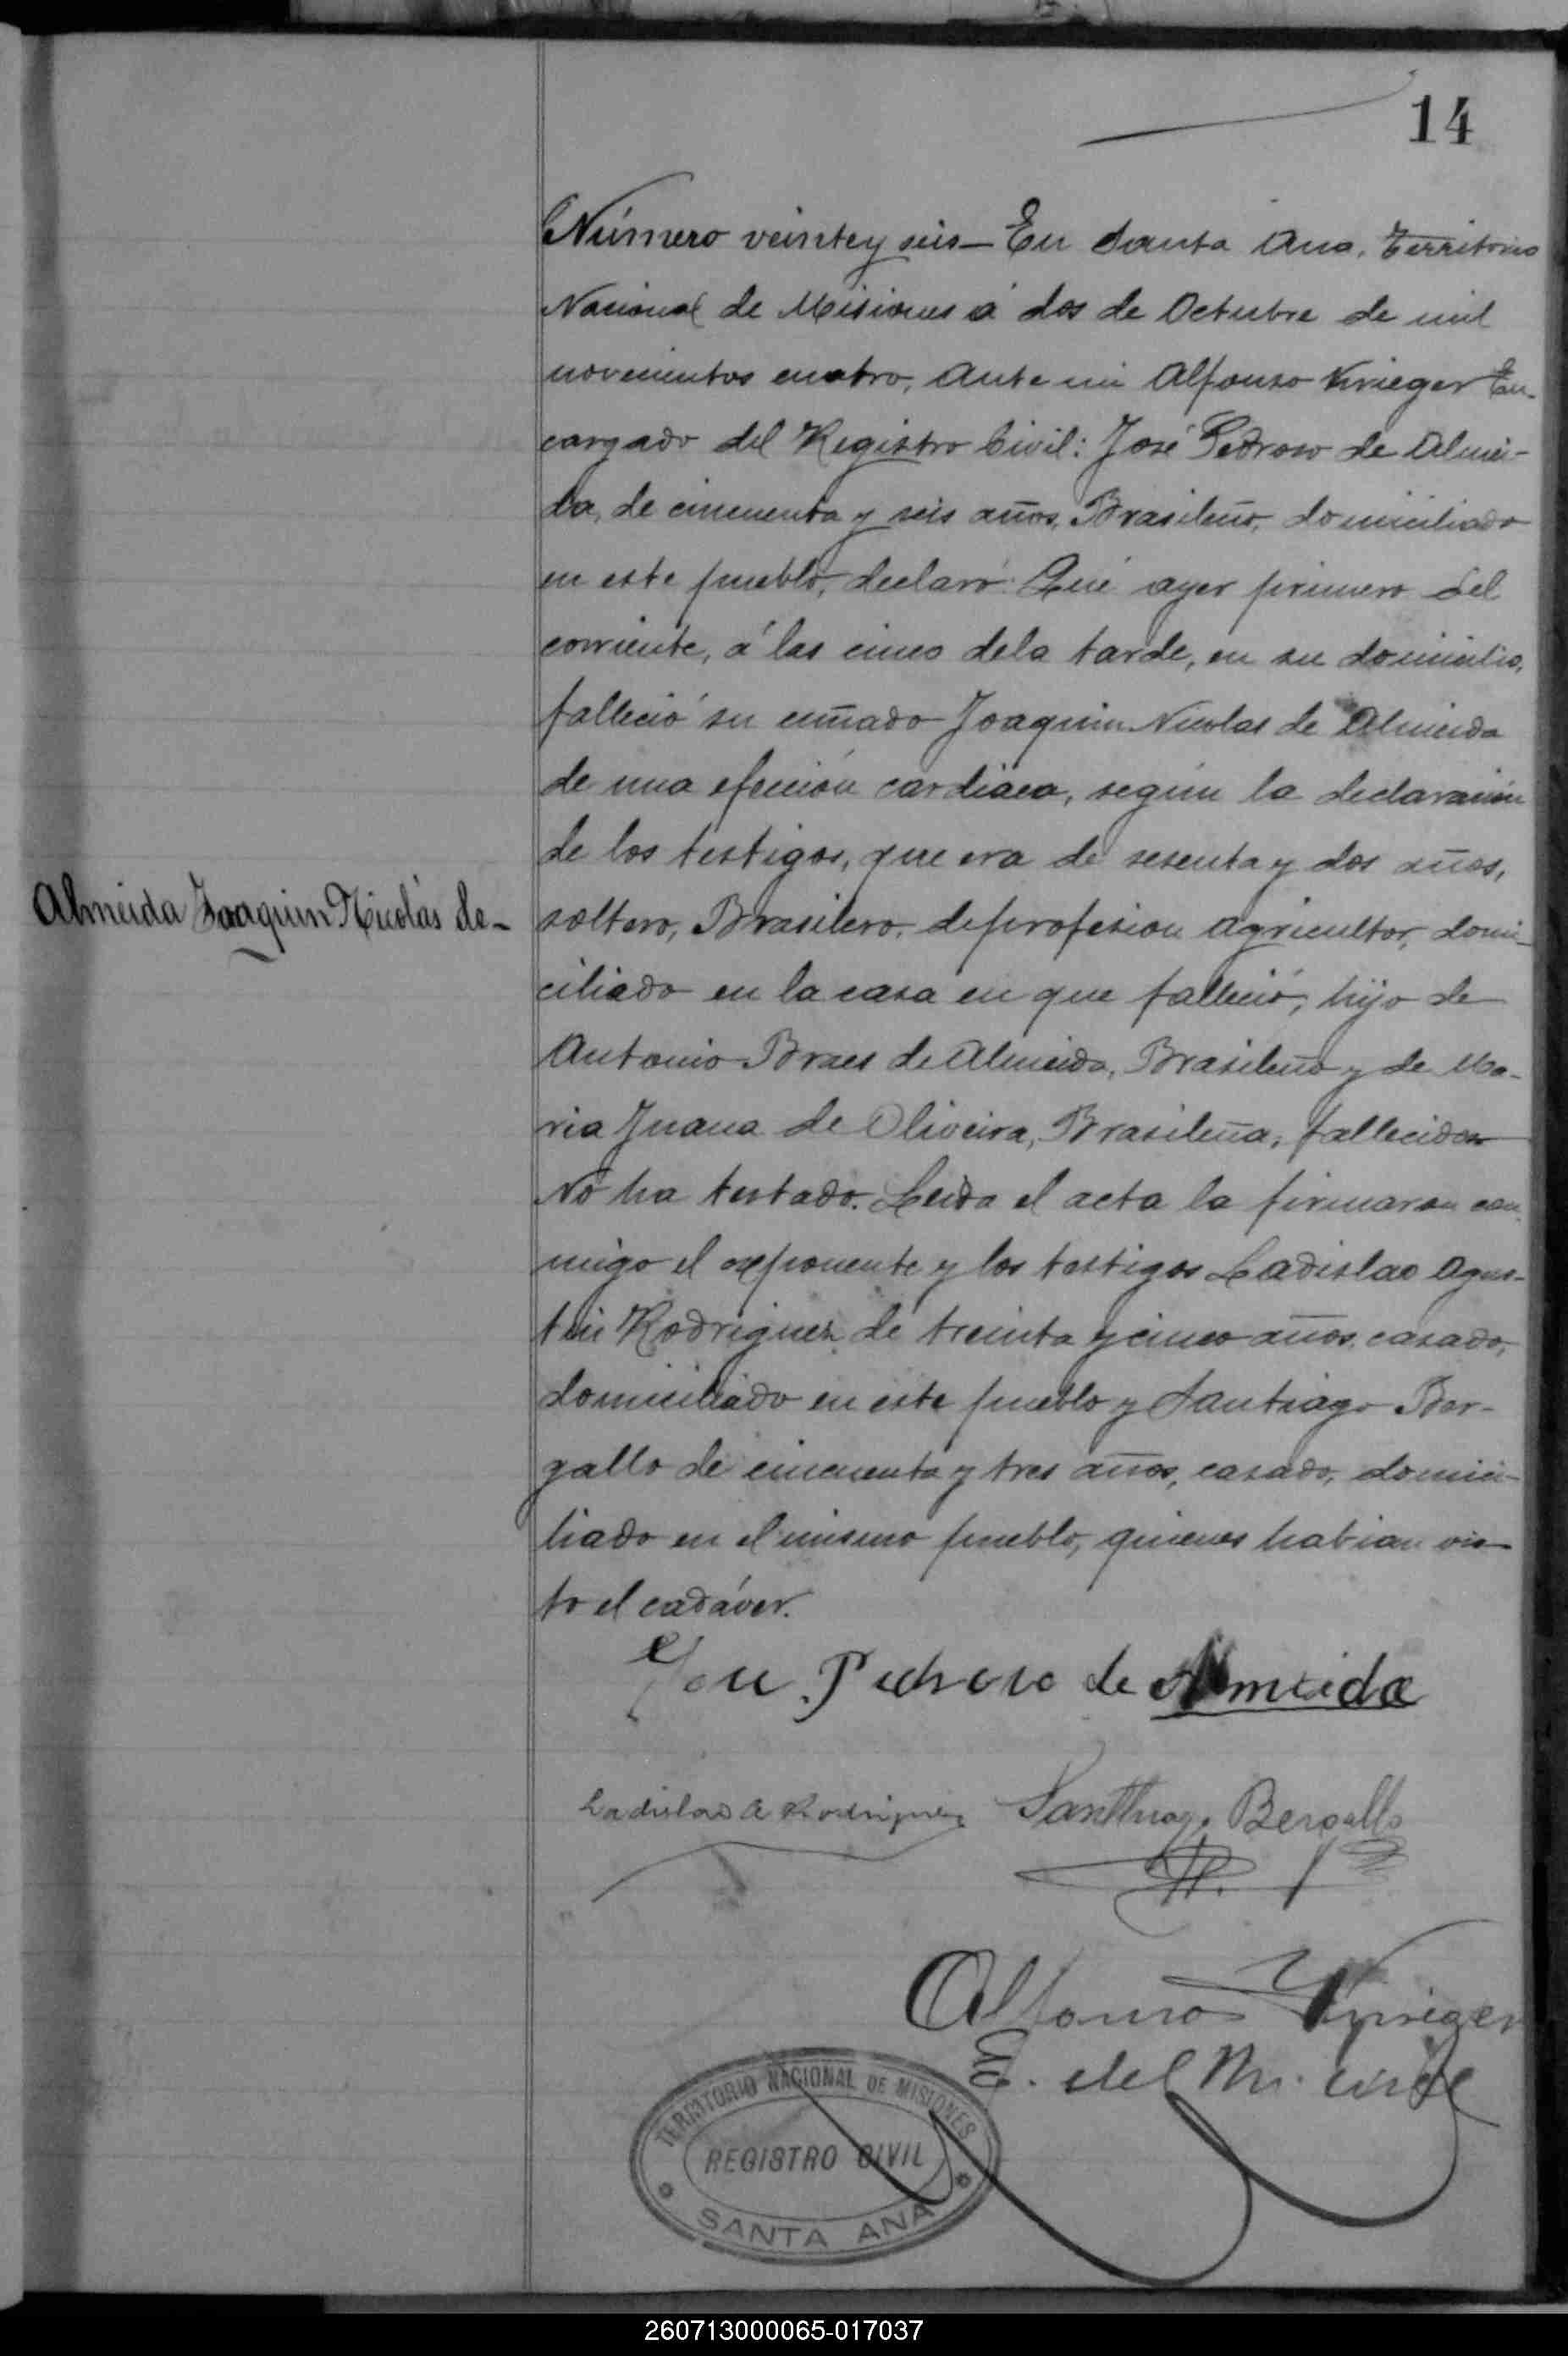 14
Número veinte y seis— En Santa Ana, Territorio
Nacional de Misiones á dos de Octubre de mil
novecientos cuatro, ante mi Alfonso Krieger En-
cargado del Registro Civil: José Pedroso de Almei-
da, de cincuenta y seis años, Brasileño, domiciliado
en este pueblo, declaró: Que ayer primero del
corriente, á las cinco dela tarde, en su domicilio,
falleció su cuñado Joaquin Nicolas de Almeida
de una afección cardiaca, según la declaración
de los testigos, que era de sesenta y dos años,
Almeida Joaquin Nicolás de-
soltero, Brasilero, de profesion agricultor, domi-
ciliado en la casa en que falleció, hijo de
Antonio Braes de Almeida, Brasileño y de Ma-
ria Juana de Oliveira, Brasileña, fallecidos
No ha testado. Leida el acta la firmaron con
migo el exponente y los testigos Ladislao Agus-
tin Rodriguez de treinta y cinco años, casado,
domiciliado en este pueblo y Santiago Ber-
gallo de cincuenta y tres años, casado, domici-
liado en el mismo pueblo, quienes habian vis-
to el cadáver.
José Pedroso de Almeida
Ladislao A Rodriguez Santiago Bergallo
Alfonso Krieger
E. del civil
TERRITORIO NACIONAL DE MISIONES
REGISTRO CIVIL
SANTA ANA
260713000065-017037